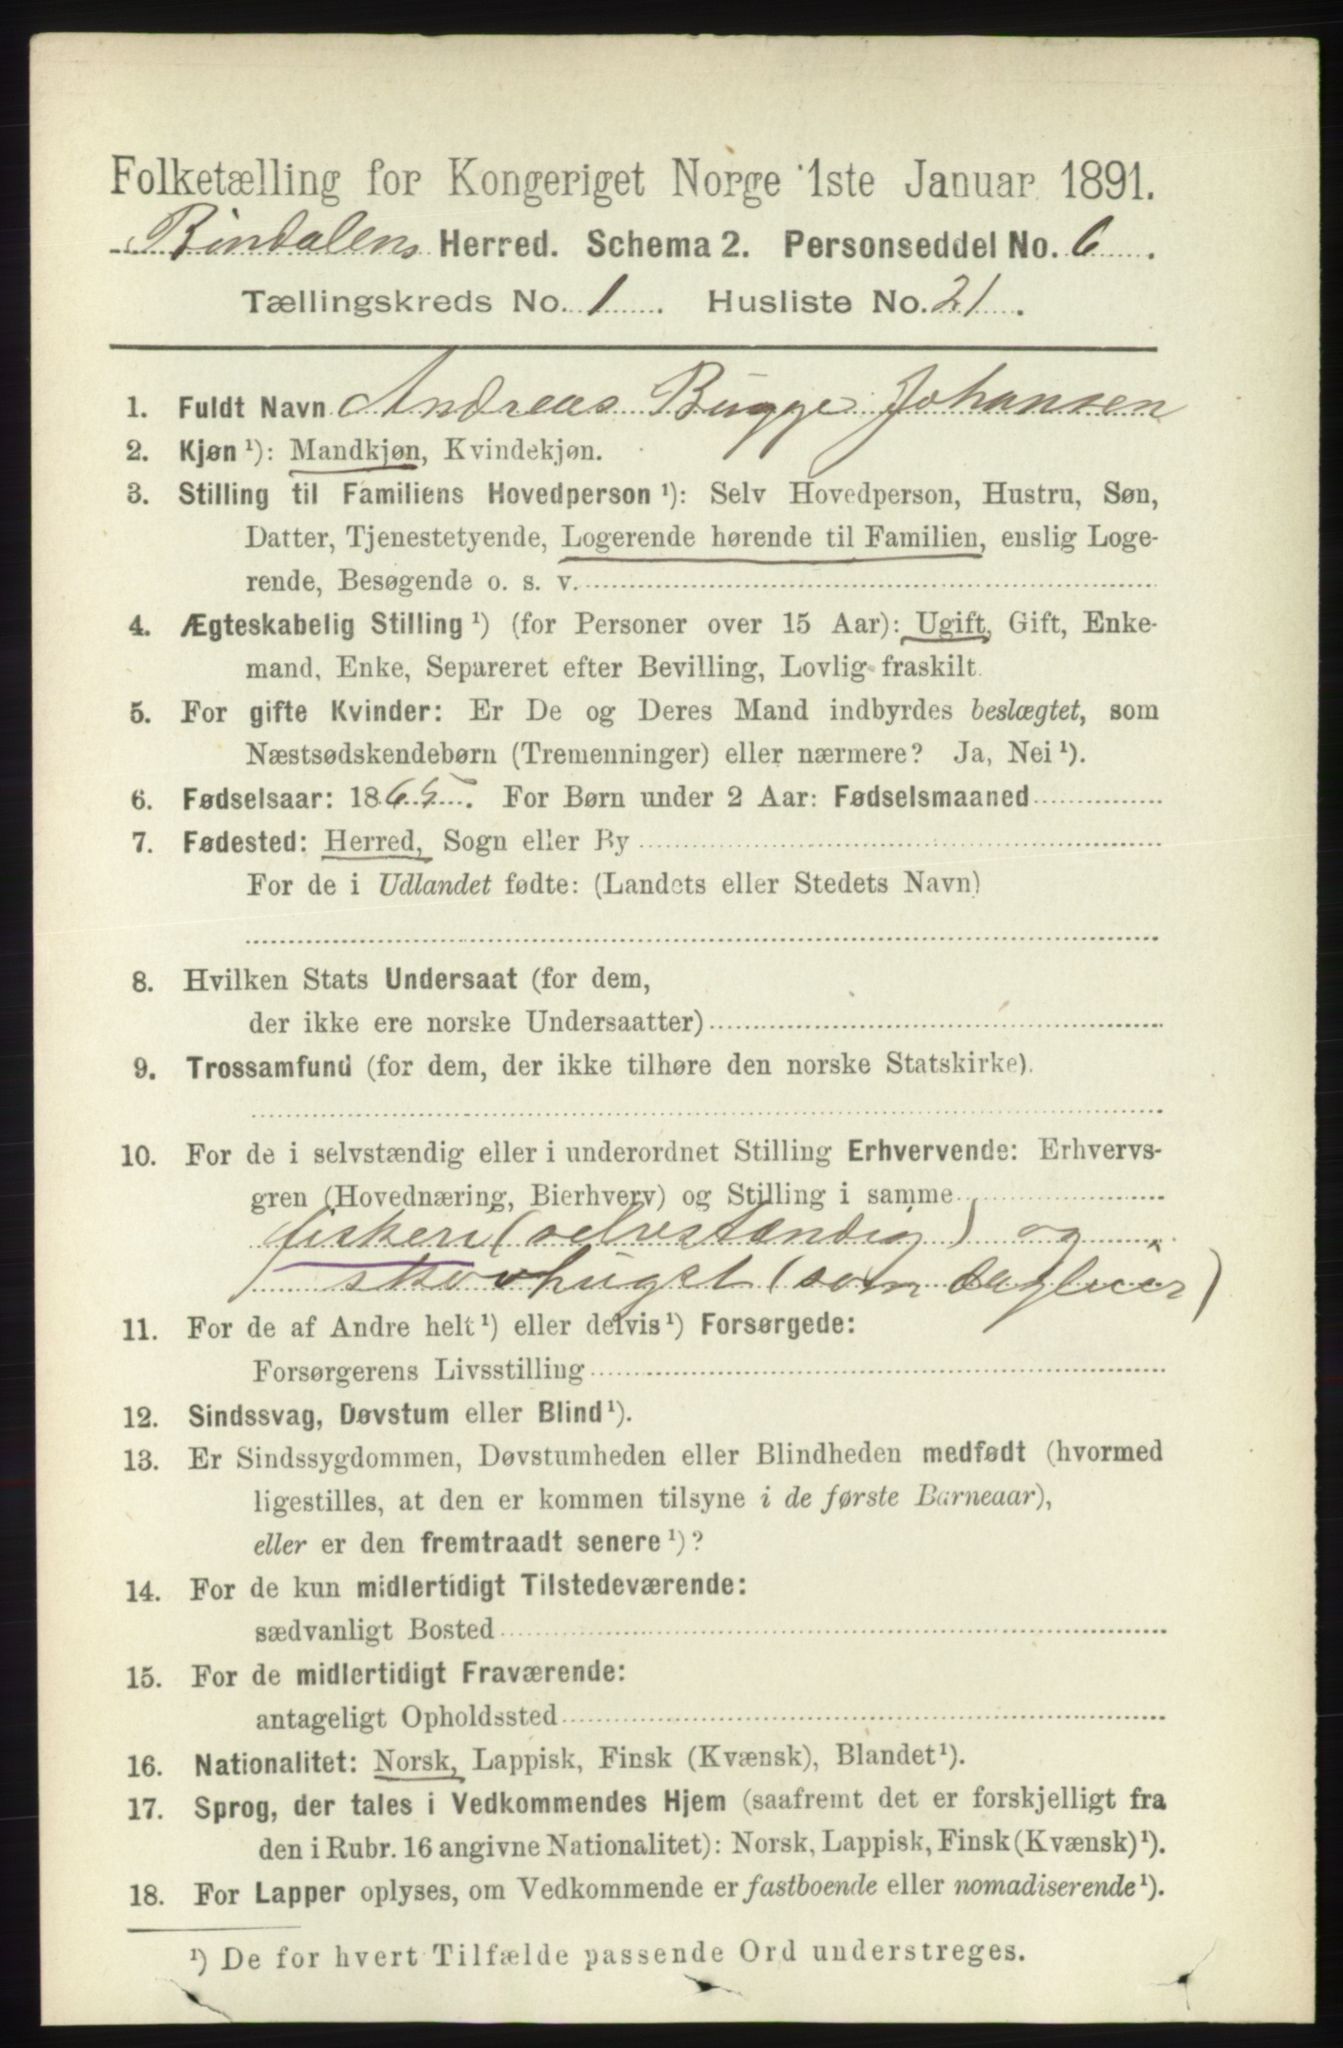 Folketælling for Kongeriget Norge 1ste Januar 1891.
Bindalens Herred. Schema 2. Personseddel No. 6.
Tællingskreds No. 1. Husliste No. 21.
1. Fuldt Navn Andreas Bugge Johansen
2. Kjøn ¹): Mandkjøn, Kvindekjøn.
3. Stilling til Familiens Hovedperson ¹): Selv Hovedperson, Hustru, Søn,
Datter, Tjenestetyende, Logerende hørende til Familien, enslig Loge-
rende, Besøgende o. s. v.
4. Ægteskabelig Stilling ¹) (for Personer over 15 Aar): Ugift, Gift, Enke-
mand, Enke, Separeret efter Bevilling, Lovlig fraskilt.
5. For gifte Kvinder: Er De og Deres Mand indbyrdes beslægtet, som
Næstsødskendebørn (Tremenninger) eller nærmere? Ja, Nei ¹).
6. Fødselsaar: 1865. For Børn under 2 Aar: Fødselsmaaned
7. Fødested: Herred, Sogn eller By
For de i Udlandet fødte: (Landets eller Stedets Navn)
8. Hvilken Stats Undersaat (for dem,
der ikke ere norske Undersaatter)
9. Trossamfund (for dem, der ikke tilhøre den norske Statskirke).
10. For de i selvstændig eller i underordnet Stilling Erhvervende: Erhvervs-
gren (Hovednæring, Bierhverv) og Stilling i samme
fiskeri (selvstændig) og
skovhugst (som dagleier)
11. For de af Andre helt ¹) eller delvis ¹) Forsørgede:
Forsørgerens Livsstilling
12. Sindssvag, Døvstum eller Blind ¹).
13. Er Sindssygdommen, Døvstumheden eller Blindheden medfødt (hvormed
ligestilles, at den er kommen tilsyne i de første Barneaar),
eller er den fremtraadt senere ¹)?
14. For de kun midlertidigt Tilstedeværende:
sædvanligt Bosted
15. For de midlertidigt Fraværende:
antageligt Opholdssted
16. Nationalitet: Norsk, Lappisk, Finsk (Kvænsk), Blandet ¹).
17. Sprog, der tales i Vedkommendes Hjem (saafremt det er forskjelligt fra
den i Rubr. 16 angivne Nationalitet): Norsk, Lappisk, Finsk (Kvænsk) ¹).
18. For Lapper oplyses, om Vedkommende er fastboende eller nomadiserende ¹).
¹) De for hvert Tilfælde passende Ord understreges.